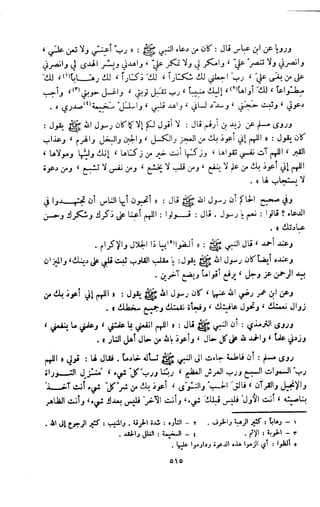 وروي عن ابن عباس قال : كان من دعاء النبي ﷺ : « رب أعني ولا تعن علي ،
وانصرني ولا تنصر علي ، وامكر لي ولا تمكر علي ، واهدني ويسر الهدى لي ، وانصرني
على من بغى علي ، رب اجعلني لك شكاراً ، لك ذكاراً ، لك رهاباً(١) ، لك
مطواعاً ، لك مخبتاً(٢) ، إليك أواهاً منيباً(٣) ، رب تقبل توبتي ، واغسل حوبتي ، وأجب
دعوتي ، وثبت حجتي ، وسدد لساني ، واهد قلبي ، واسلل سخيمة(٤) صدري » .
وعن زيد بن أرقم قال : لا أقول لكم إلا كما كان رسول الله ﷺ يقول :
كان يقول : « اللهم إني أعوذ بك من العجز والكسل ، والجبن والبخل ، والهرم ، وعذاب
القبر ، اللهم آت نفسي تقواها ، وزكها أنت خير من زكاها ، أنت وليها ومولاها ،
اللهم إني أعوذ بك من علم لا ينفع ، ومن قلب لا يخشع ، ومن نفس لا تشبع ، ومن دعوة
لا يستجاب لها » .
وفي صحيح الحاكم أن رسول الله ﷺ قال : أتحبون أيها الناس أن تجتهدوا في
الدعاء ؟ قالوا : نعم يا رسول الله . قال : قولوا : « اللهم أعنا على ذكرك وشكرك وحسن
عبادتك » .
وعند أحمد قال النبي ﷺ : « ألظوا(٥) بيا ذا الجلال والإكرام » .
وعنده أيضاً كان رسول الله ﷺ يقول : « يا مقلب القلوب ثبت قلبي على دينك ، والميزان
بيد الرحمن عز وجل ، يرفع أقواماً ويضع آخرين » .
وعن ابن عمر رضي الله عنهما ، كان النبي ﷺ يقول : « اللهم إني أعوذ بك من
زوال نعمتك ، وتحول عافيتك ، وفجاءة نقمتك ، وجميع سخطك » .
وروى الترمذي : أن النبي ﷺ قال : « اللهم انفعني بما علمتني ، وعلمني ما ينفعني ،
وزدني علماً ، والحمد لله على كل حال ، وأعوذ بالله من حال أهل النار » .
وروى مسلم : أن فاطمة جاءت إلى النبي ﷺ تسأله خادماً . فقال لها : قولي « اللهم
رب السموات السبع ورب العرش العظيم ، ربنا ورب كل شيء ، منزل التوراة
والإنجيل والقرآن ، فالق الحب والنوى ، أعوذ بك من شر كل شيء أنت آخذ
بناصيته ، أنت الأول فليس قبلك شيء ، وأنت الآخر فليس بعدك شيء ، وأنت الظاهر
١ - رهاباً : كثير الرهبة والخوف .
٢ - التأوه : شدة الحرقة . والمنيب : كثير الرجوع إلى الله .
٣ - الحوبة : الإثم .
٤ - السخيمة : الغل والحقد .
٥ - ألظوا : أي الزموا هذه الدعوة وداوموا عليها .
٥١٥